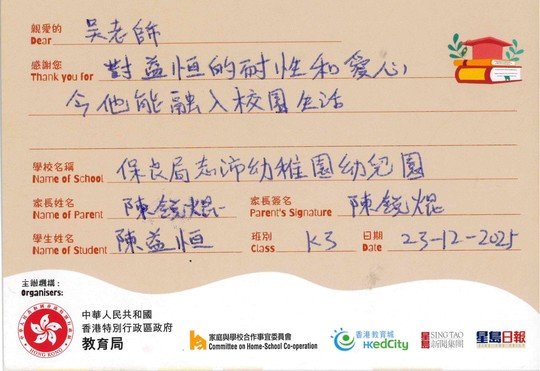 親愛的 吳老師
Dear
感謝您 對益恒的耐性和愛心,
Thank you for
令他能融入校園生活
學校名稱 保良局志沛幼稚園幼兒園
Name of School
家長姓名 陳鋭焜 家長簽名 陳鋭焜
Name of Parent Parent's Signature
學生姓名 陳益恒 班別 K3 日期 23-12-2025
Name of Student Class Date
主辦機構：
Organisers:
中華人民共和國
香港特別行政區政府
教育局
HONG KONG
家庭與學校合作事宜委員會
Committee on Home-School Co-operation
香港教育城
HKedCity
星島 SING TAO
新聞集團
星島日報